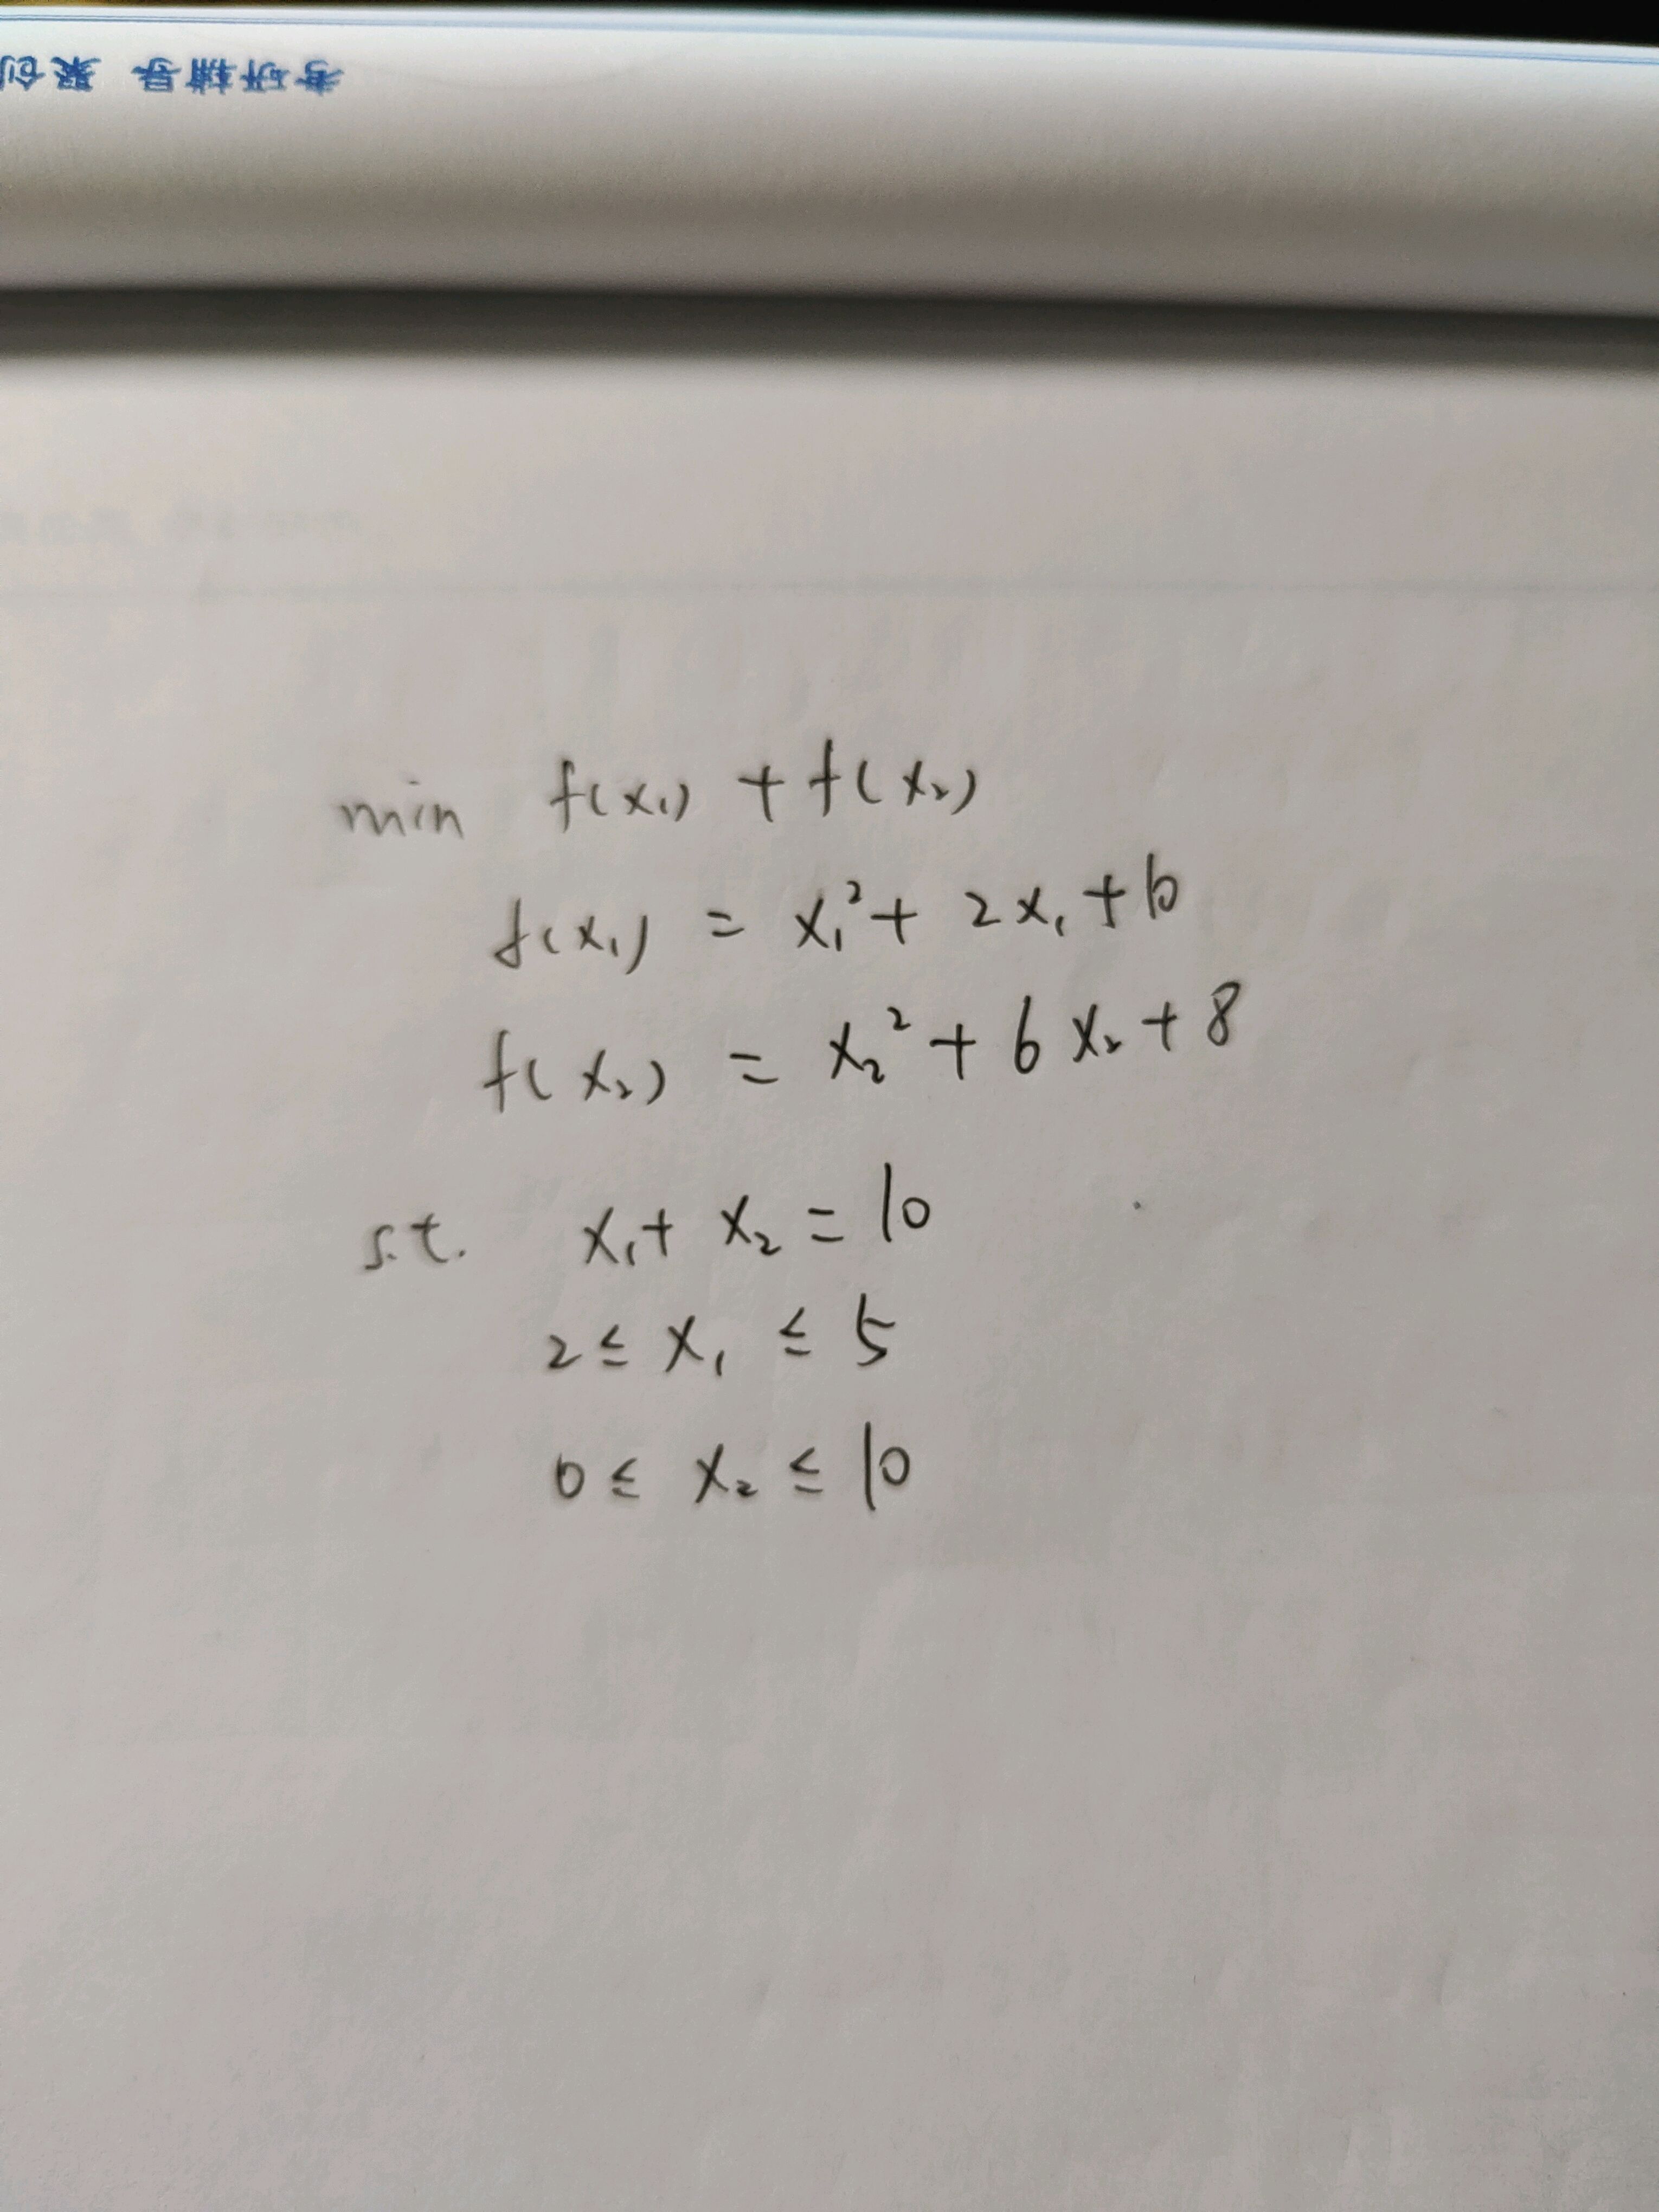 考研辅导 聚创
min f(x₁) + f(x₂)
f(x₁) = x₁² + 2x₁ + 6
f(x₂) = x₂² + 6x₂ + 8
s.t. x₁ + x₂ = 10
2 ≤ x₁ ≤ 5
0 ≤ x₂ ≤ 10